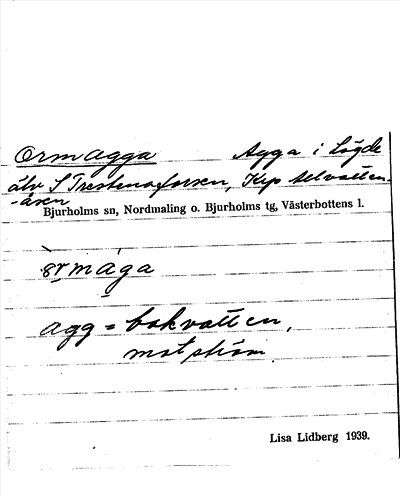 Ormagga Agga i Lögde
älv S Trestenaforsen, Kep selvatten
-åsen
Bjurholms sn, Nordmaling o. Bjurholms tg, Västerbottens l.
ormaga
agg = bakvatten,
motström
Lisa Lidberg 1939.